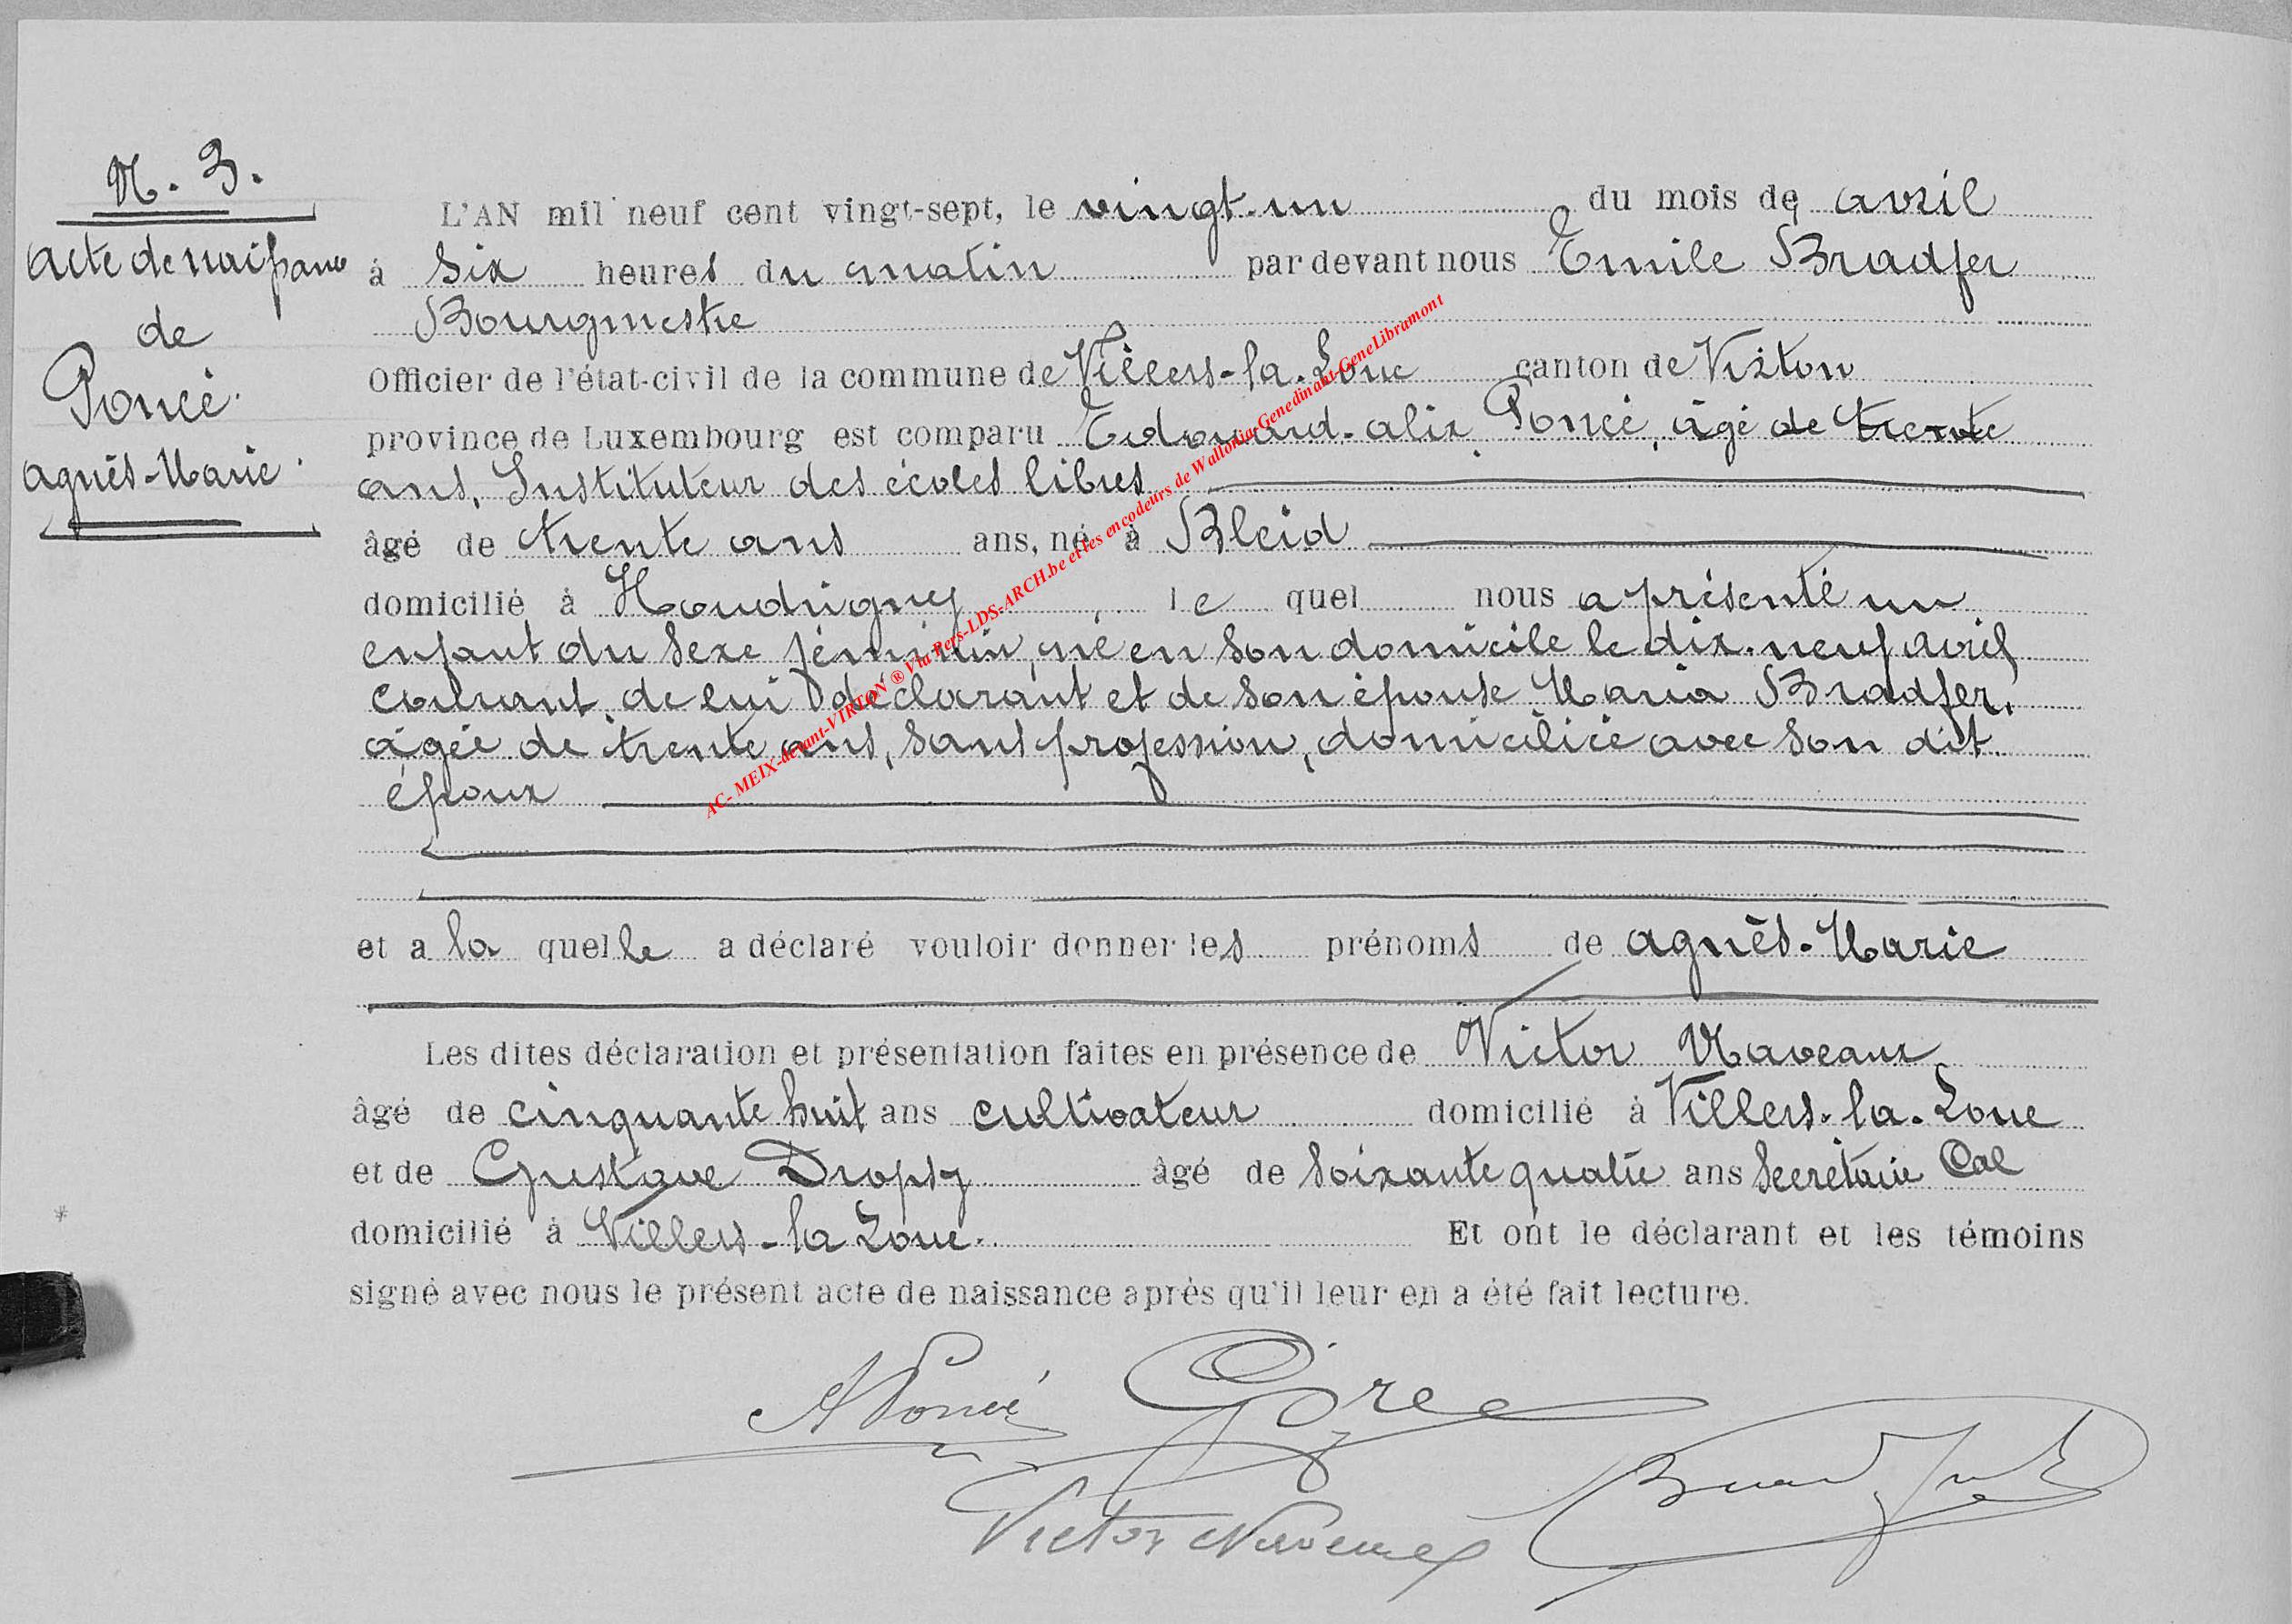 N. 3.
acte de naissance
de
Poncé
agnès-Marie
L'AN mil neuf cent vingt-sept, le vingt-un du mois de avril
à six heures du matin par devant nous Emile Bradfer
Bourgmestre
Officier de l'état-civil de la commune de Villers-la-Loue canton de Virton
province de Luxembourg est comparu Edouard-alix Poncé, âgé de trente
ans, Instituteur des écoles libres
âgé de trente ans ans, né à Bleid
domicilié à Houdrigny, le quel nous a présenté un
enfant du sexe féminin, né en son domicile le dix-neuf avril
courant, de lui déclarant et de son épouse Maria Bradfer,
âgée de trente ans, sans profession, domiciliée avec son dit
époux
et a la quelle a déclaré vouloir donner les prénoms de agnès-Marie
Les dites déclaration et présentation faites en présence de Victor Naveaux
âgé de cinquante huit ans cultivateur domicilié à Villers-la-Loue
et de Gustave Dropsy âgé de soixante quatre ans secrétaire Cal
domicilié à Villers-la Loue. Et ont le déclarant et les témoins
signé avec nous le présent acte de naissance après qu'il leur en a été fait lecture.
A Poncé
Victor Naveaux
Bradfer
AC- MEIX-devant-VIRTON ® Via Pers-LDS-ARCH.be et les encodeurs de Wallonia-Genedinant-GeneLibramont